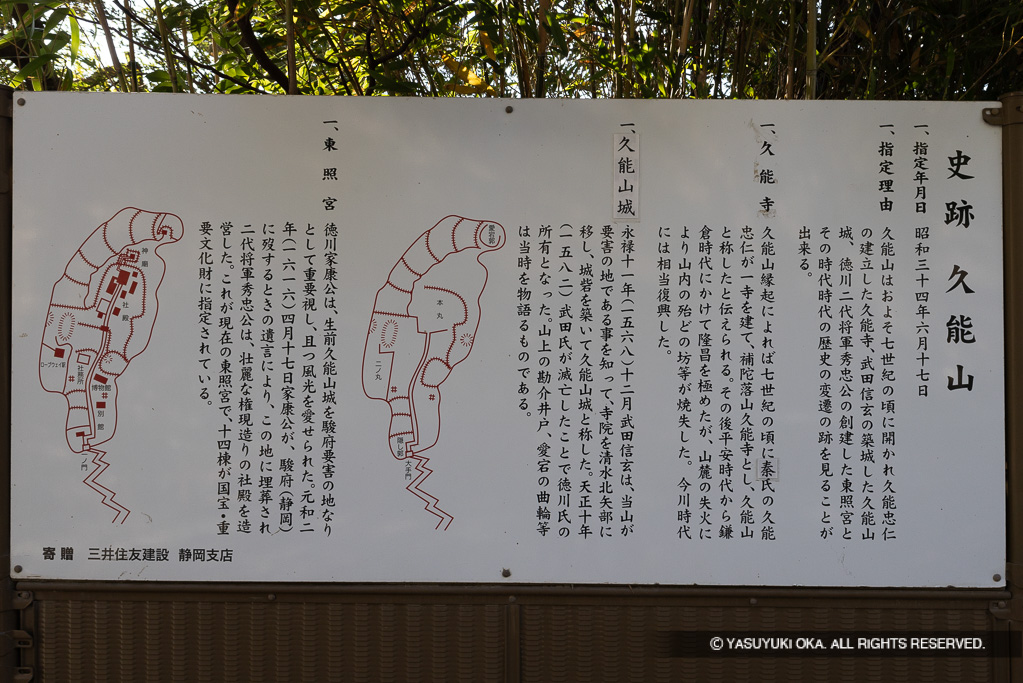 史跡 久能山
一、指定年月日 昭和三十四年六月十七日
一、指定理由 久能山はおよそ七世紀の頃に開かれ久能忠仁
の建立した久能寺、武田信玄の築城した久能山
城、徳川二代将軍秀忠公の創建した東照宮と
その時代時代の歴史の変遷の跡を見ることが
出来る。
一、久能寺 久能山縁起によれば七世紀の頃に秦氏の久能
忠仁が一寺を建て、補陀落山久能寺とし、久能山
と称したと伝えられる。その後平安時代から鎌
倉時代にかけて隆昌を極めたが、山麓の失火に
より山内の殆どの坊等が焼失した。今川時代
には相当復興した。
一、久能山城 永禄十一年(一五六八)十二月武田信玄は、当山が
要害の地である事を知って、寺院を清水北矢部に
移し、城砦を築いて久能山城と称した。天正十年
(一五八二)武田氏が滅亡したことで徳川氏の
所有となった。山上の勘介井戸、愛宕の曲輪等
は当時を物語るものである。
愛宕郭
本丸
二ノ丸
隠し郭
大手門
一、東照宮 徳川家康公は、生前久能山城を駿府要害の地なり
として重要視し、且つ風光を愛せられた。元和二
年(一六一六)四月十七日家康公が、駿府(静岡)
に歿するときの遺言により、この地に埋葬され
二代将軍秀忠公は、壮麗な権現造りの社殿を造
営した。これが現在の東照宮で、十四棟が国宝・重
要文化財に指定されている。
神廟
社殿
ロープウェイ駅
社務所
博物館
別館
一ノ門
寄贈 三井住友建設 静岡支店
© YASUYUKI OKA. ALL RIGHTS RESERVED.